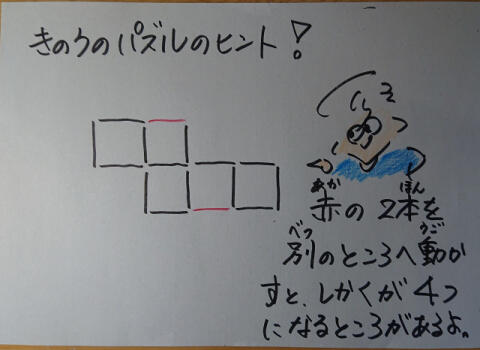 きのうのパズルのヒント!
赤の2本を
あか ほん
別のところへ動か
べつ うご
すと、しかくが4つ
になるところがあるよ。